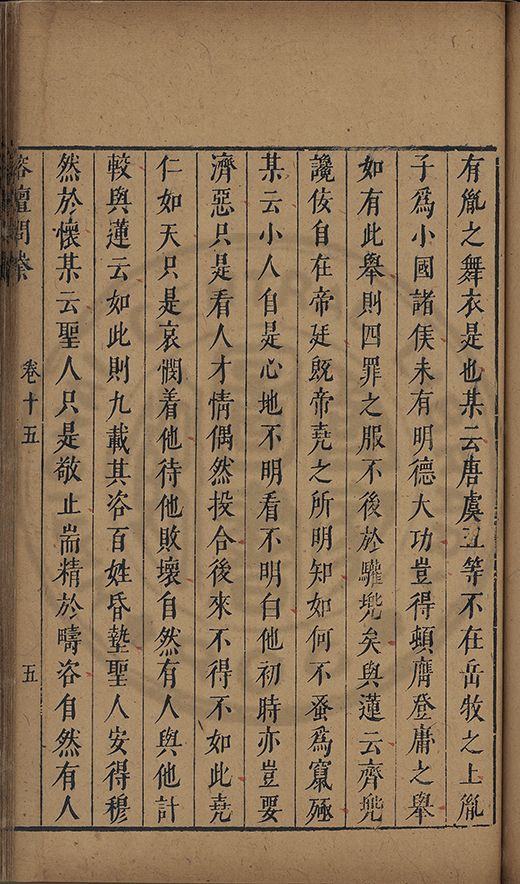 有胤之舞衣是也某云唐虞五等不在岳牧之上胤
子爲小國諸侯未有明德大功豈得頓膺登庸之舉
如有此舉則四罪之服不後於驩兠矣與蓮云齊兠
讒佞自在帝廷旣帝堯之所明知如何不蚤爲竄殛
某云小人自是心地不明看不明白他初時亦豈要
濟惡只是看人才情偶然投合後來不得不如此堯
仁如天只是哀憫着他待他敗壞自然有人與他計
較與蓮云如此則九載其咨百姓昏墊聖人安得穆
然於懷某云聖人只是敬止耑精於疇咨自然有人
榕壇問業 卷十五 五